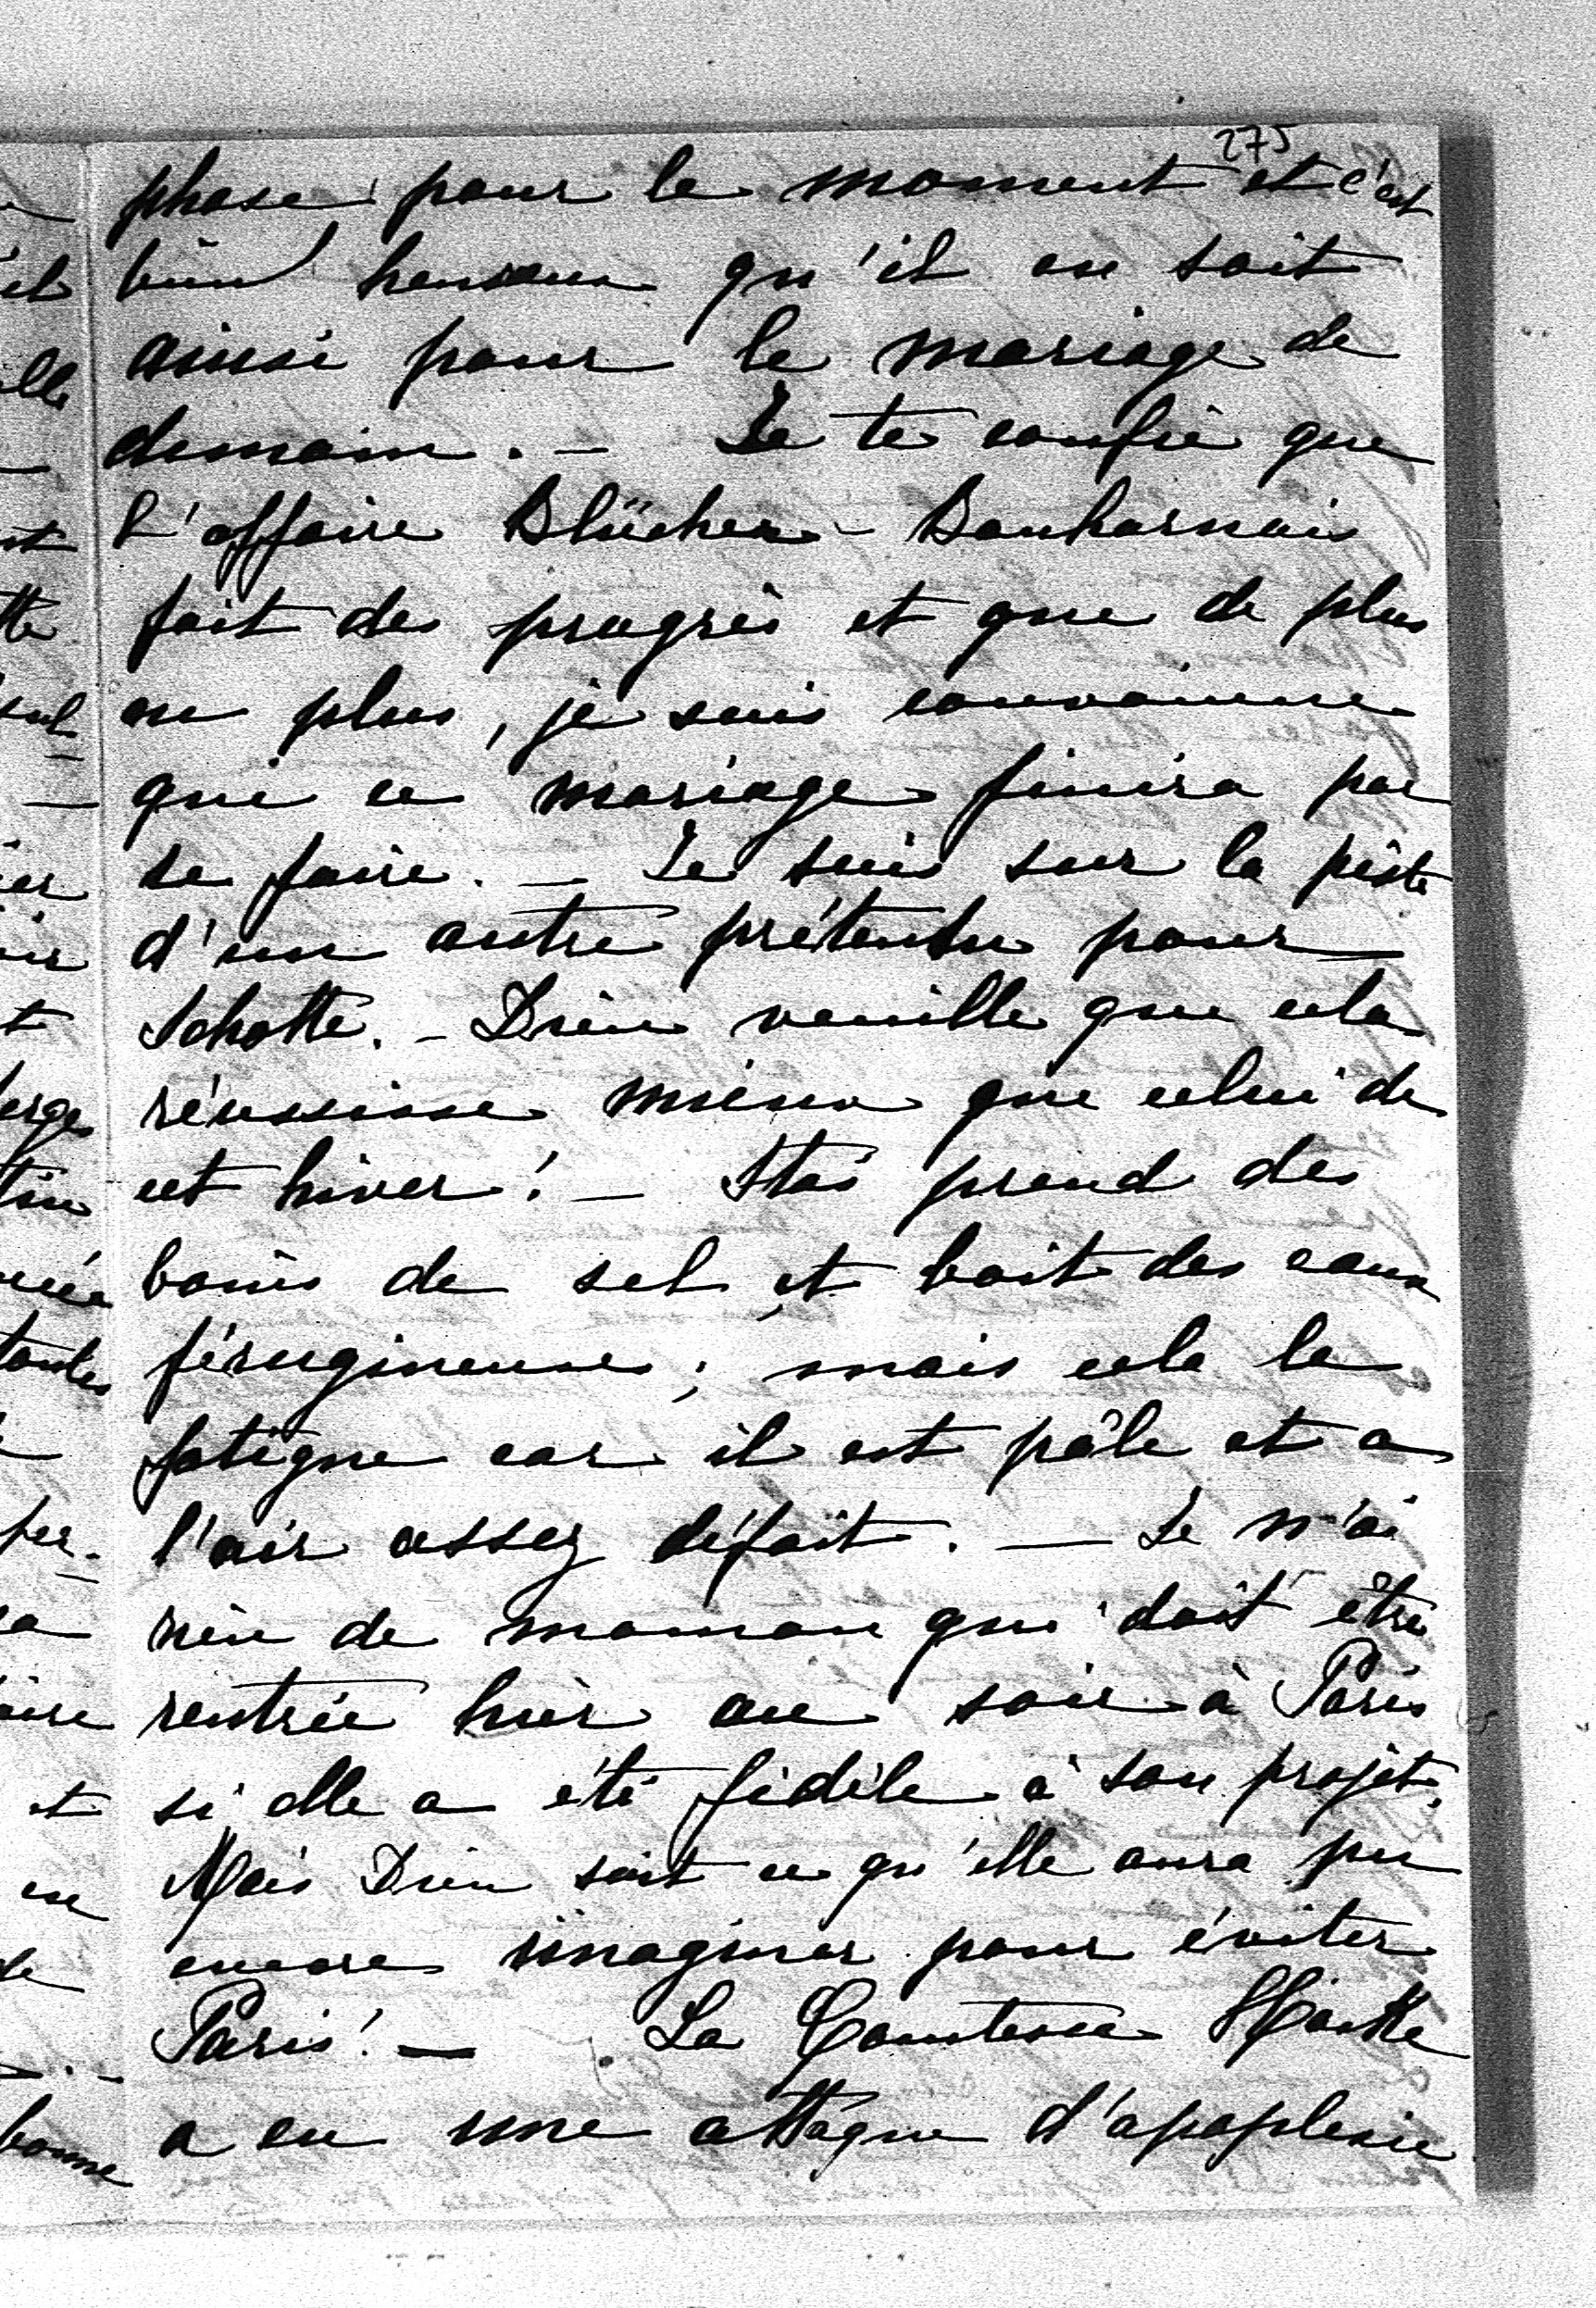 275
phase pour le moment et c'est
bien heureux qu'il en soit
ainsi pour le mariage de
demain. — Je te confie que
l'affaire Blücher - Bauharnais
fait des progrès et que de plus
en plus, je suis convaincue
que ce mariage finira par
se faire. — Je suis sur la piste
d'un autre prétendu pour
Schotte. — Dieu veuille que cela
réussisse mieux que celui de
cet hiver! — Stas prend des
bains de sel et boit des eaux
férugineuses; mais cela le
fatigue car il est pâle et a
l'air assez défait. — Je n'ai
rien de maman qui doit être
rentrée hier au soir à Paris
si elle a été fidèle à son projet.
Mais Dieu sait ce qu'elle aura pu
encore imaginer pour éviter
Paris! — La Comtesse
a eu une attaque d'apoplexie